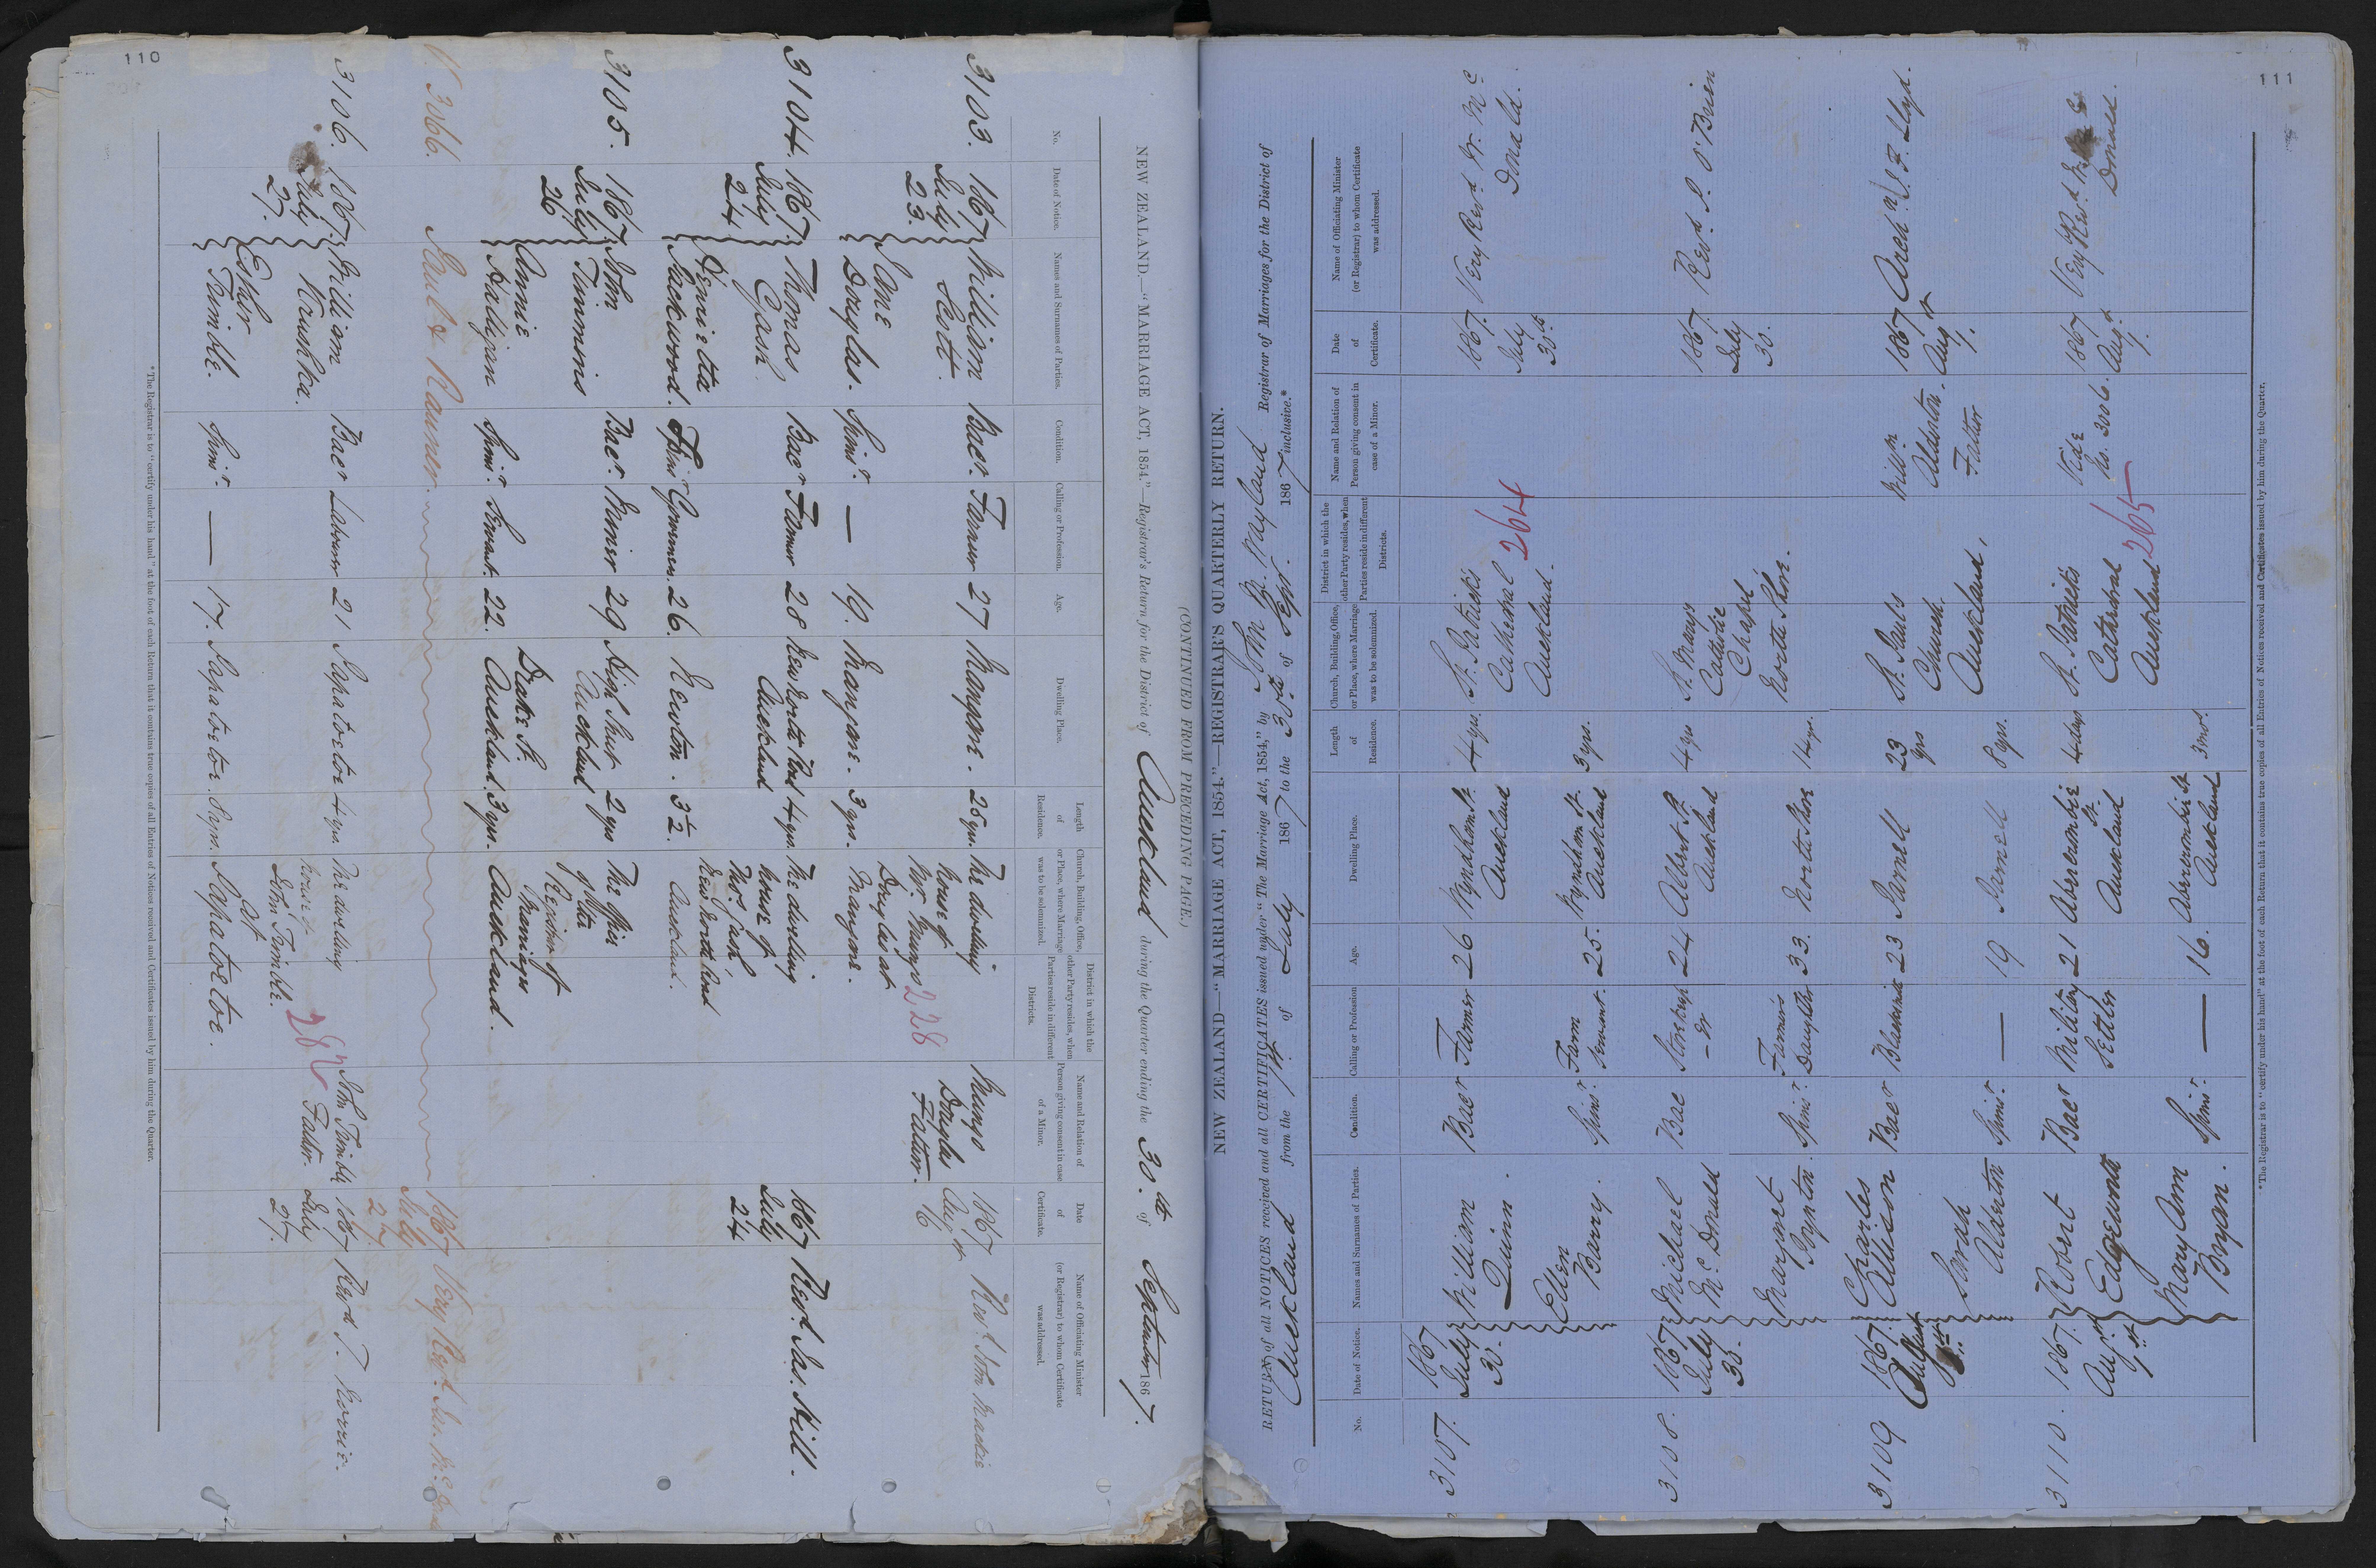 110
NEW ZEALAND.—"MARRIAGE ACT, 1854."—Registrar's Return for the District of Auckland during the Quarter ending the 30th of September 1867.
No.
Date of Notice.
Names and Surnames of Parties.
Condition.
Calling or Profession.
Age.
Dwelling Place.
Length of Residence.
Church, Building, Office, or Place, where Marriage was to be solemnized.
District in which the other Party resides, when Parties reside in different Districts.
Name and Relation of Person giving consent in case of a Minor.
Date of Certificate.
Name of Officiating Minister (or Registrar) to whom Certificate was addressed.
3103. 1867 July 23.
William Scott. Bacr. Farmer 27 Mangare. 25 yrs. The dwelling house of Mr. Mungo Douglas at Mangare. 228
Jane Douglas. Spinsr. — 19. Mangare. 3 yrs.
Mungo Douglas Father.
1867 Augst 16 Revd. John Mackie
3104. 1867. July 24
Thomas Gash. Bacr Farmer 28 New North Road Auckland 4 yrs. The dwelling house of Thos. Gash, New North Road Auckland.
Henrietta Jackwood. Spinsr 26. Newton. 3½.
1867 July 24 Revd. Jas. Hill.
3105. 1867 July 26
John Timmins Bacr. Miner 29 High Street Auckland 2 yrs The Office of the Registrar of Marriages Auckland.
Annie Halligan Spinsr. Servant. 22. Drake St. Auckland. 3 yrs.
V. 3066. 1867 July 27. Very Revd. Jas. McDonald
3106. 1867. July 27.
William Krushka. Bacr Labourer 21 Papatoetoe 4 yrs. The dwelling house of John Trimble. at Papatoetoe. 282
Esther Trimble. Spinsr. — 17. Papatoetoe. 3 yrs.
John Trimble Father.
1867 July 27. Revd T. Norrie.
* The Registrar is to "certify under his hand" at the foot of each Return that it contains true copies of all Entries of Notices received and Certificates issued by him during the Quarter.
111
(CONTINUED FROM PRECEDING PAGE.)
NEW ZEALAND—"MARRIAGE ACT, 1854."—REGISTRAR'S QUARTERLY RETURN.
RETURN of all NOTICES received and all CERTIFICATES issued under "The Marriage Act, 1854," by John B. Wayland Registrar of Marriages for the District of
Auckland from the 1st of July 1867 to the 30th of Sepr. 1867 inclusive.*
No.
Date of Notice.
Names and Surnames of Parties.
Condition.
Calling or Profession
Age.
Dwelling Place.
Length of Residence.
Church, Building, Office, or Place, where Marriage was to be solemnized.
District in which the other Party resides, when Parties reside in different Districts.
Name and Relation of Person giving consent in case of a Minor.
Date of Certificate.
Name of Officiating Minister (or Registrar) to whom Certificate was addressed.
3107. 1867 July 30.
William Quinn. Bacr Farmer 26 Wyndham St. Auckland 4 yrs. St. Patricks Cathedral Auckland. 264
Ellen Barry. Spinsr. Farm Servant. 25. Wyndham St. Auckland 3 yrs.
1867. July 30th Very Revd. W. Mc Donald.
3108. 1867 July 30.
Michael McDonald Bac Storekeeper 24 Albert St. Auckland 4 yrs St. Marys Catholic Chapel North Shore.
Margaret Spinsr. Farmers Daughter 33. North Shore 14 yrs.
1867. July 30. Revd. P. O'Brien
3109 1867. August 1st
Charles Allisson Bacr Blacksmith 23 Parnell 23 yrs St. Pauls Church. Auckland.
Sarah Alderton Spinsr. — 19 Parnell 8 yrs.
Willm Alderton. Father
1867 Augst 1. Archn. Lloyd.
3110. 1867. Augst 1st
Robert Edgeworth Bacr Military Settler 21 Abercrombie St. Auckland 4 days St. Patricks Cathedral Auckland 265
Mary Ann Bryan. Spinsr. — 16. Abercrombie St. Auckland 3 mos.
Vide No. 3006.
1867 Augst 1. Very Revd. McDonald.
* The Registrar is to "certify under his hand" at the foot of each Return that it contains true copies of all Entries of Notices received and Certificates issued by him during the Quarter.